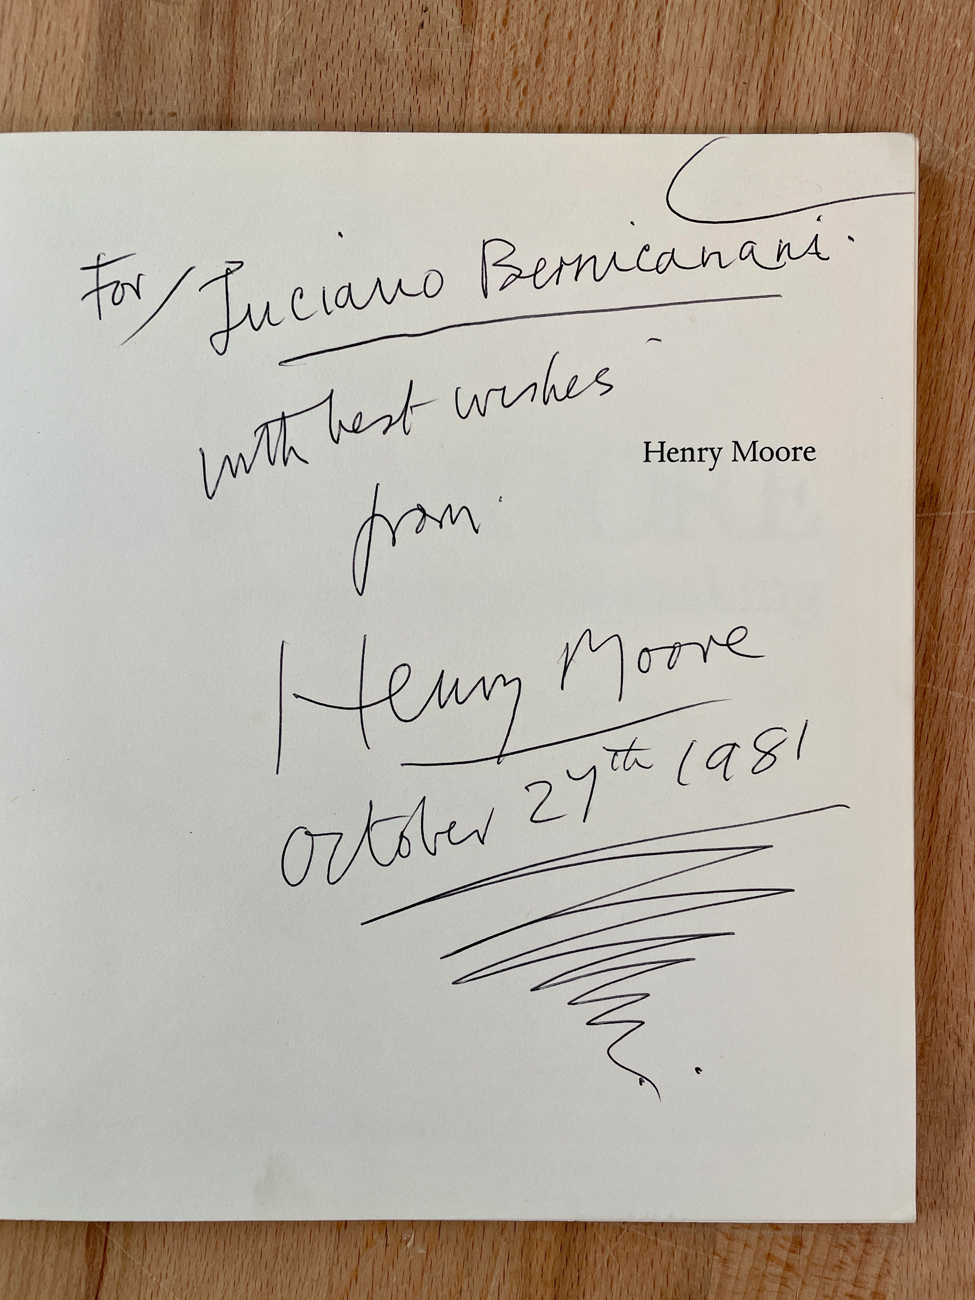 For/ Luciano Bernicanani.
with best wishes
Henry Moore
from
Henry Moore
October 27th 1981